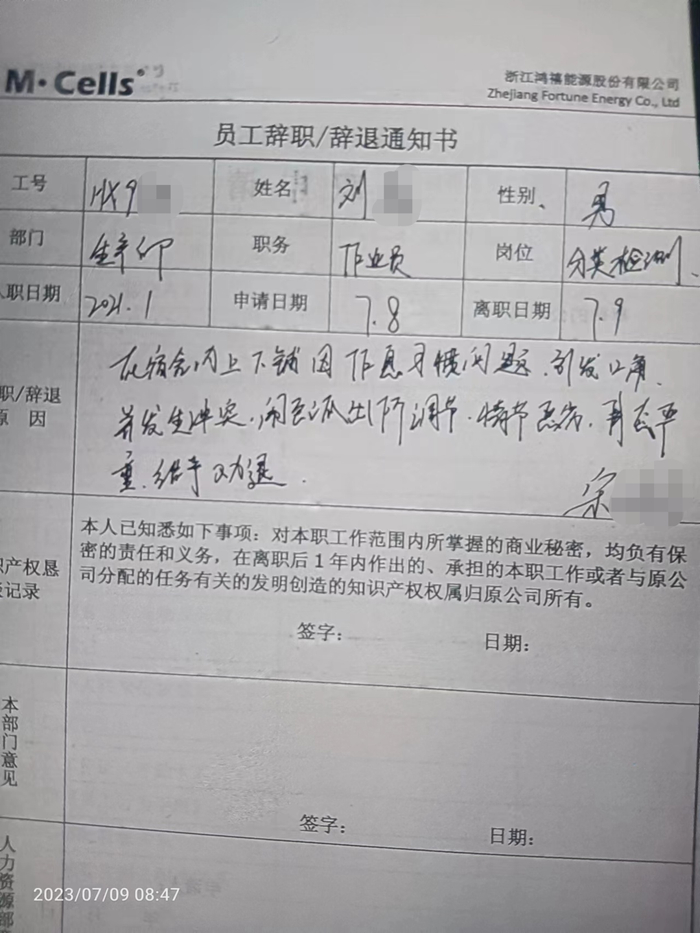 M·Cells
浙江鸿禧能源股份有限公司
Zhejiang Fortune Energy Co., Ltd
员工辞职/辞退通知书
工号 HX9 姓名 刘 性别 男
部门 生产部 职务 作业员 岗位 分类检测
职日期 2021.1 申请日期 7.8 离职日期 7.9
职/辞退
因
在宿舍内上下铺因作息习惯问题,引发口角,
并发生冲突,闹至派出所调节,情节恶劣,
重,给予劝退.
宗
产权恳
记录
本人已知悉如下事项：对本职工作范围内所掌握的商业秘密，均负有保
密的责任和义务，在离职后1年内作出的、承担的本职工作或者与原公
司分配的任务有关的发明创造的知识产权权属归原公司所有。
签字： 日期：
本部门意见
签字： 日期：
人力资源部
2023/07/09 08:47